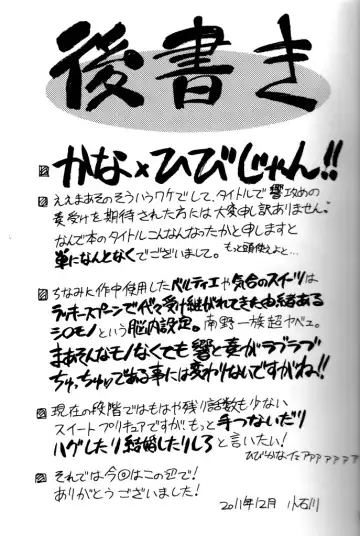 後書き
かな×ひびじゃん!!
ええまあそのそういうワケでして、タイトルで響攻めの
奏受けを期待された方には大変申し訳ありません。
なんで本のタイトルこんなんなったかと申しますと
単になんとなくでございまして。もっと頭使えよと…
ちなみに作中使用したパルティエや気合のスイーツは
ラッキースプーンで代々受け継がれてきた由緒ある
シロモノという脳内設定。南野一族超ヤベェ。
まあそんなモノなくても響と奏がラブラブ
ちゅっちゅである事には変わりないですがね!!
現在の段階ではもはや残り話数も少ない
スイートプリキュアですが、もっと手つないだり
ハグしたり結婚したりしろと言いたい!
ひびかなイェアァァァァァ
それでは今回はこの辺で!
ありがとうございました!
2011年12月 小石川